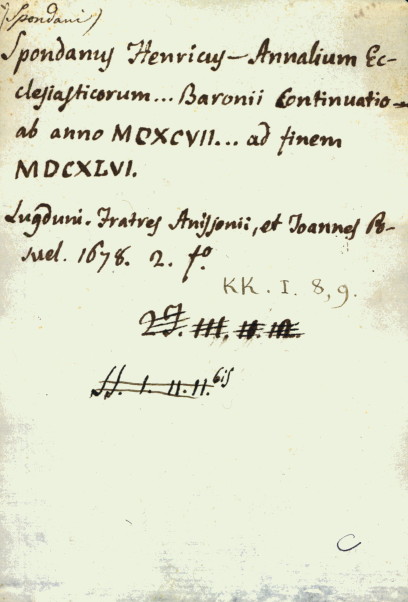 (Spondani)
Spondanus Henricus — Annalium Ec-
clesiasticorum... Baronii Continuatio
ab anno MCXCVII... ad finem
MDCXLVI.
Lugduni. Fratres Anissonii, et Joannes Po-
suel. 1678. 2. fo.
KK. I. 8, 9.
III. II.
I. II. II. bis
C